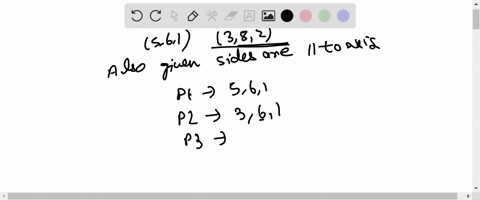 (5,6,1) (3,8,2)
Also given sides are 11 to axis
P1 → 5,6,1
P2 → 3,6,1
P3 →